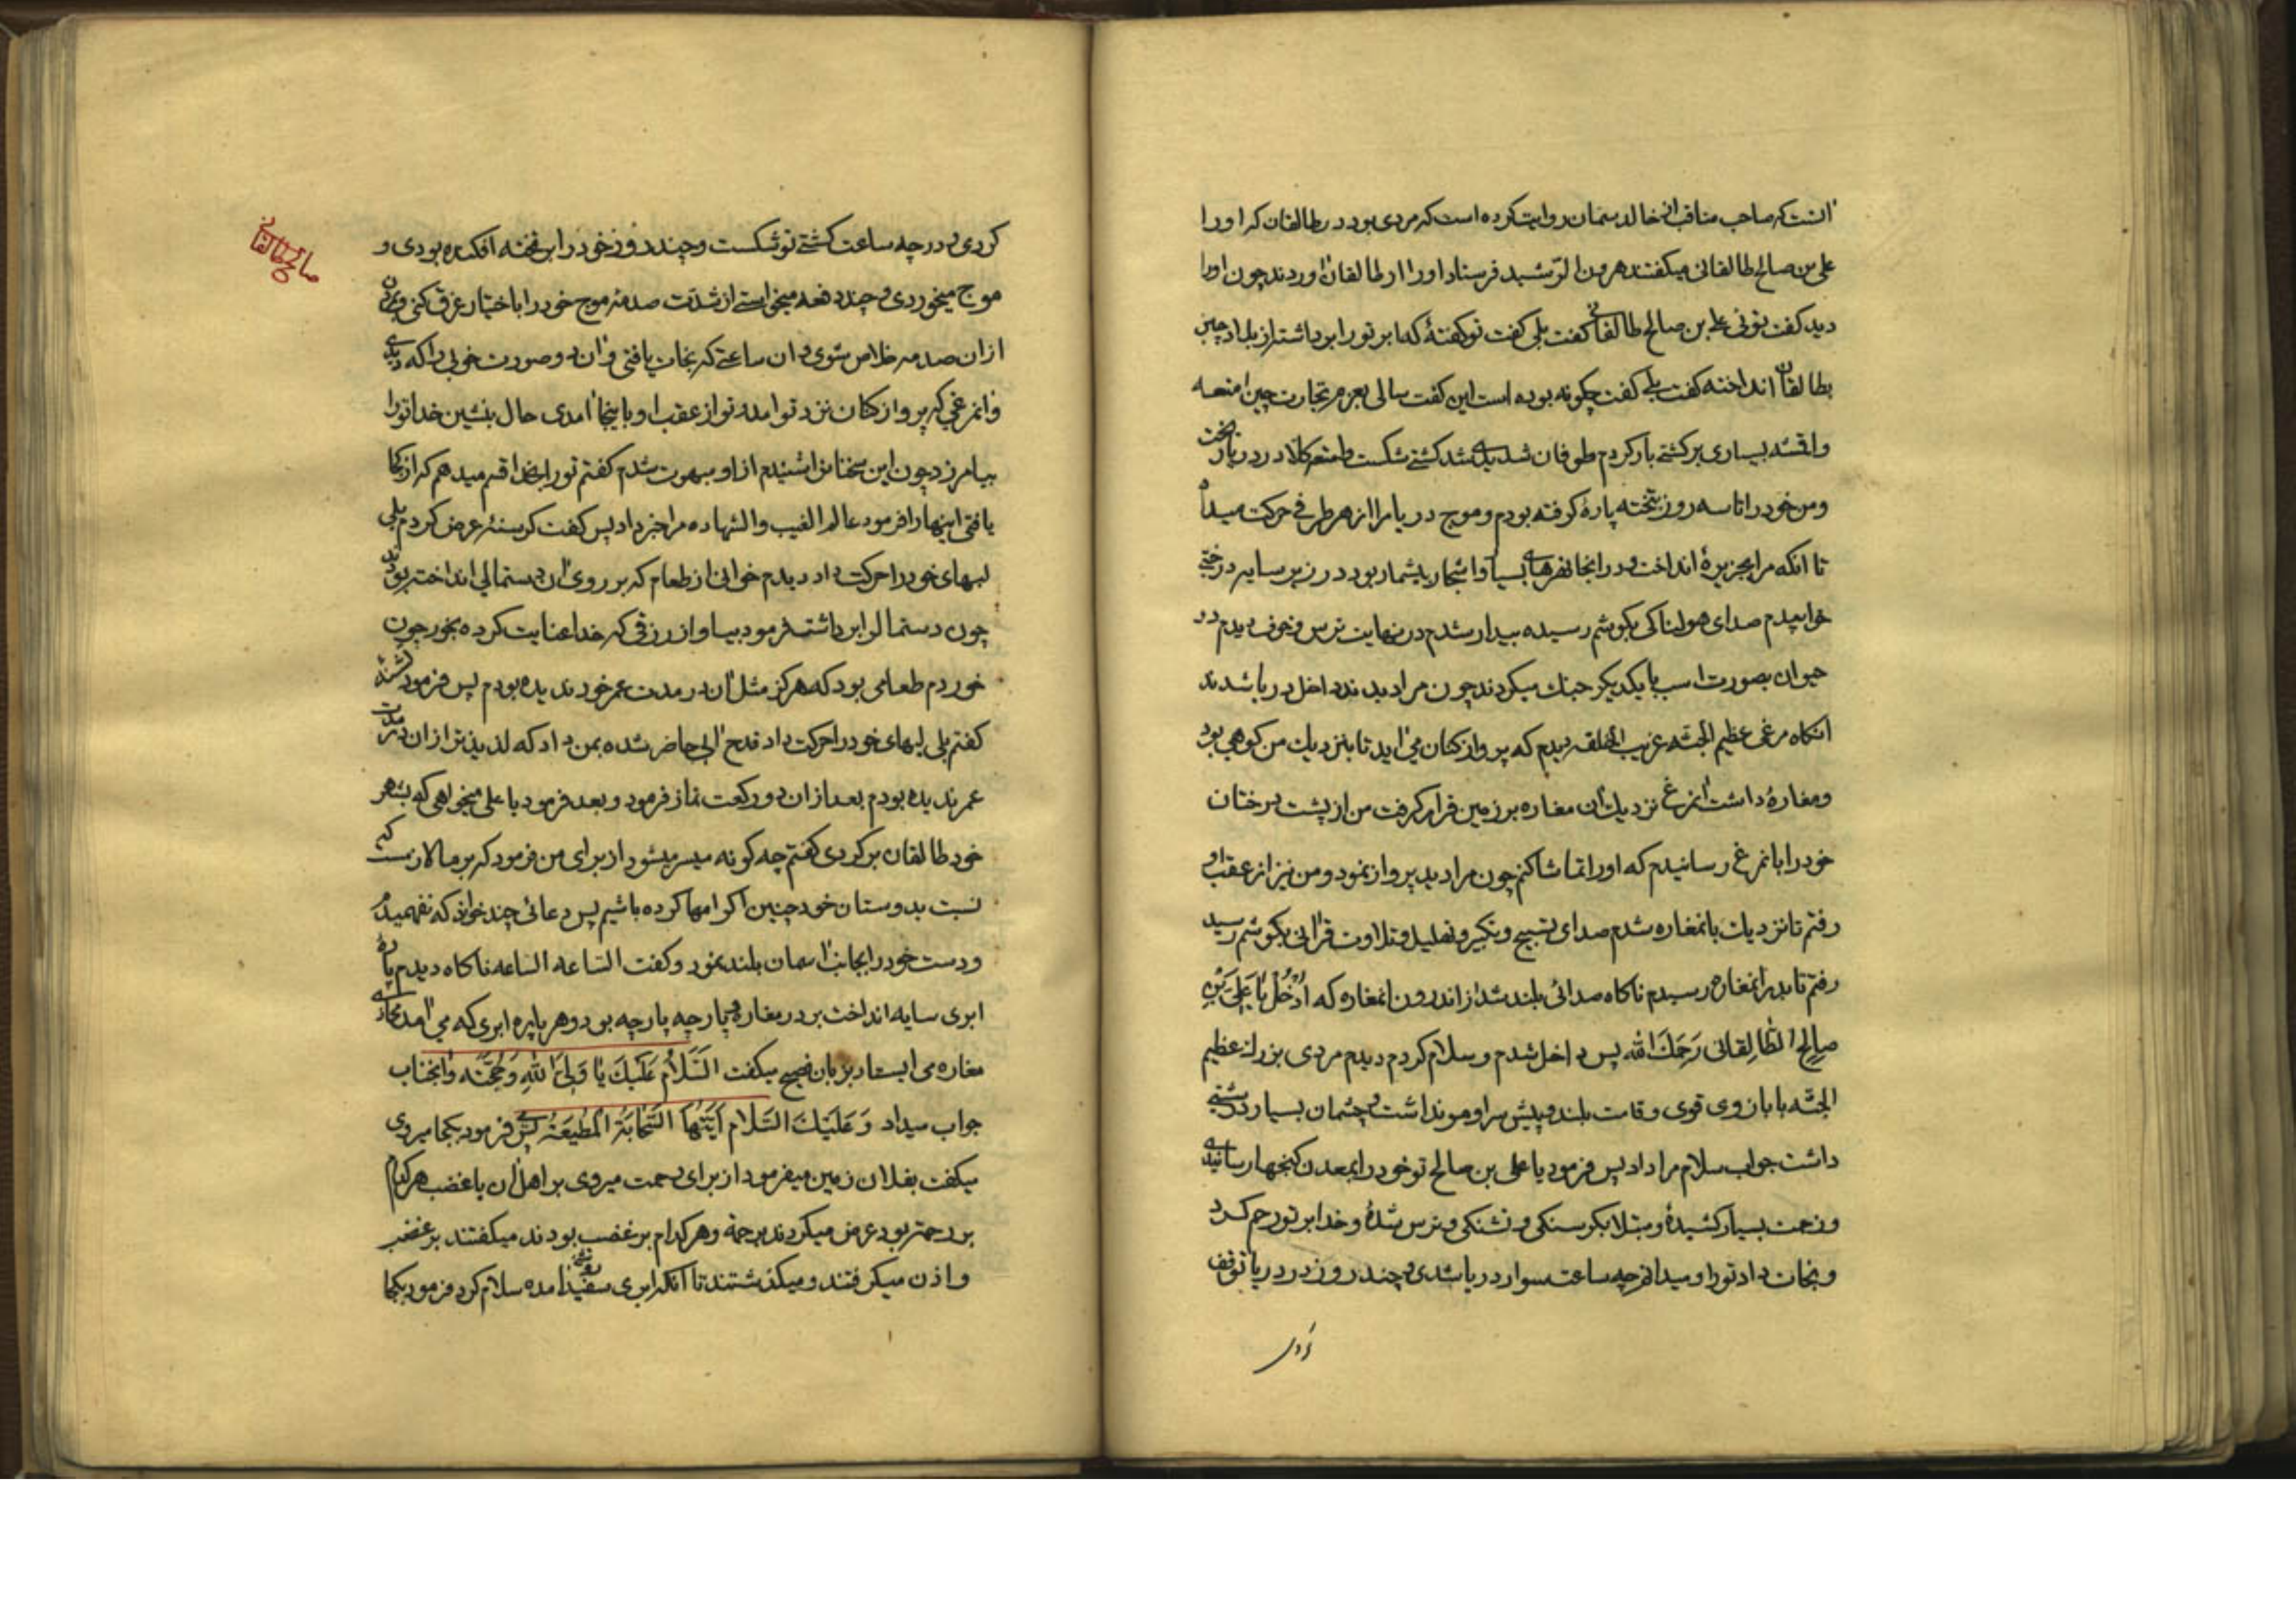 آنست که صاحب مناقب از خالد سمان روایت کرده است که مردی بود در طالقان که او را
علی بن صالح طالقانی میکفتند هرون الرّشید فرستاد او را از طالقان اوردند چون او را
دید کفت توئی علی بن صالح طالقانی کفت بلی کفت تو کفتهٔ که ابر تو را برداشته از بلاد چین
بطالقان انداخته کفت بلی کفت چکونه بوده است این کفت سالی بعزم تجارت چین امتعه
واقشه بسیاری بر کشتی بار کردم طوفان شدیدی شد کشتی شکست و امتعه کلا در دریا ریخت
ومن خود را تا سه روز بتخته پارهٔ کرفته بودم و موج دریا مرا از هر طرفی حرکت میداد
تا انکه مرا بجزیرهٔ انداخت و در انجا نهرهای بسیار و اشجار بیشمار بود در زیر سایه درختی
خوابیدم صدای هولناکی بکوشم رسیده بیدار شدم در نهایت ترس و خوف دیدم دو
حیوان بصورت اسب با یکدیکر جنك میکردند چون مرا دیدند داخل دریا شدند
انکاه مرغی عظیم الجثه غریب الخلقه دیدم که پرواز کنان می اید تا بنزدیك من کوهی بود
ومغارهٔ داشت انمرغ نزدیك ان مغاره بر زمین قرار کرفت من از پشت درختان
خود را بانمرغ رسانیدم که او را تماشا کنم چون مرا دید پرواز نمود و من نیز از عقب او
رفتم تا نزدیك بانمغاره شدم صدای تسبیح و تکبیر و تهلیل و تلاوت قرانی بکوشم رسید
رفتم تا بدر انمغاره رسیدم ناکاه صدائی بلند شد از اندرون انمغاره که اُدْخُلْ یا عَلیَّ بْنَ
صالِح الطّالِقانی رَحِمَكَ الله پس داخل شدم و سلام کردم دیدم مردی بزرك عظیم
الجثّه با بازوی قوی و قامت بلند و پیش سر او مو نداشت و چشمان بسیار درشتی
داشت جواب سلام مرا داد پس فرمود یا علی بن صالح تو خود را بمعدن کنجها رسانیدی
وزحمت بسیار کشیدهٔ و مبتلا بکرسنکی و تشنکی و ترس شدهٔ و خدا بر تو رحم کرد
ونجات داد تو را و میدانم چه ساعت سوار دریا شدی و چند روز در دریا توقف
کردی
صالح طالقانی
کردی و در چه ساعت کشتی تو شکست و چند روز خود را بر تخته افکنده بودی و
موج میخوردی و چند دفعه میخواستی از شدّت صدمهٔ موج خود را باختیار غرق کنی و
از ان صدمه خلاص شوی و ان ساعتی که نجات یافتی و ان دو صورت خوبی را که دیدی
وانمرغی که پرواز کنان نزد تو امد و تو از عقب او باینجا امدی حال بنشین خدا تو را
بیامرزد چون این سخنانرا شنیدم از او مبهوت شدم کفتم تو را بخدا قسم میدهم که از کجا
یافتی اینها را فرمود عالم الغیب والشهاده مرا خبر داد پس کفت کرسنهٔ عرض کردم بلی
لبهای خود را حرکت داد دیدم خوانی از طعام که بر روی ان دستمالی انداخته بودند
چون دستمال را برداشت فرمود بیا و از رزقی که خدا عنایت کرده بخور چون
خوردم طعامی بود که هرکز مثل ان در مدت عمر خود ندیده بودم پس فرمود تشنهٔ
کفتم بلی لبهای خود را حرکت داد قدح ابی حاضر شده بمن داد که لذیذ تر از ان در مدت
عمر ندیده بودم بعد از ان دو رکعت نماز فرمود و بعد فرمود یا علی میخواهی که بشهر
خود طالقان برکردی کفتم چه کونه میسر میشود از برای من فرمود که بر ما لازمست که
نسبت بدوستان خود چنین اکرامها کرده باشیم پس دعائی چند خواند که نفهمیدم
ودست خود را بجانب اسمان بلند نمود و کفت السّاعه السّاعه ناکاه دیدم پاره
ابری سایه انداخت بر در مغاره و پارچه پارچه بود و هر پاره ابری که می امد محاذی
مغاره می ایستاد بزبان فصیح میکفت السَّلامُ عَلَیكَ یا وَلیَّ اللهِ وَ حُجَّتَه وانجناب
جواب میداد وَعَلَیْكَ السَّلام اَیَّتُهَا السَّحابَةُ الْمُطیعَة پس فرمود بکجا میروی
میکفت بفلان زمین میفرمود از برای رحمت میروی بر اهل ان یا غضب هر کدام
بر رحمت بود عرض میکردند برحمة و هر کدام بر غضب بودند میکفتند بر غضب
واذن میکرفتند و میکذشتند تا انکه ابری سفید امده سلام کرد فرمود بکجا